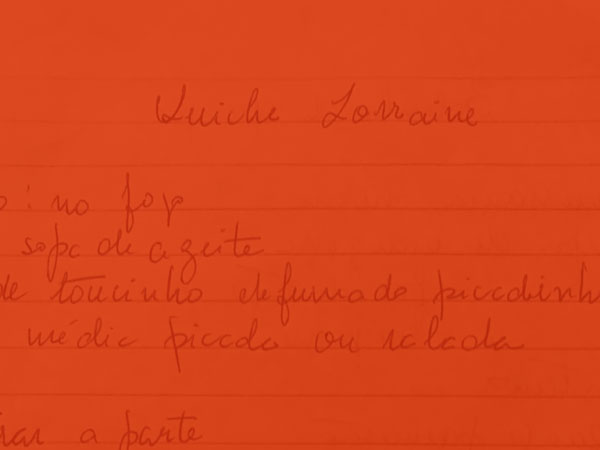 Quiche Lorraine
: no fogo
sopa de azeite
de toucinho defumado picadinh
média picada ou ralada
rar a parte